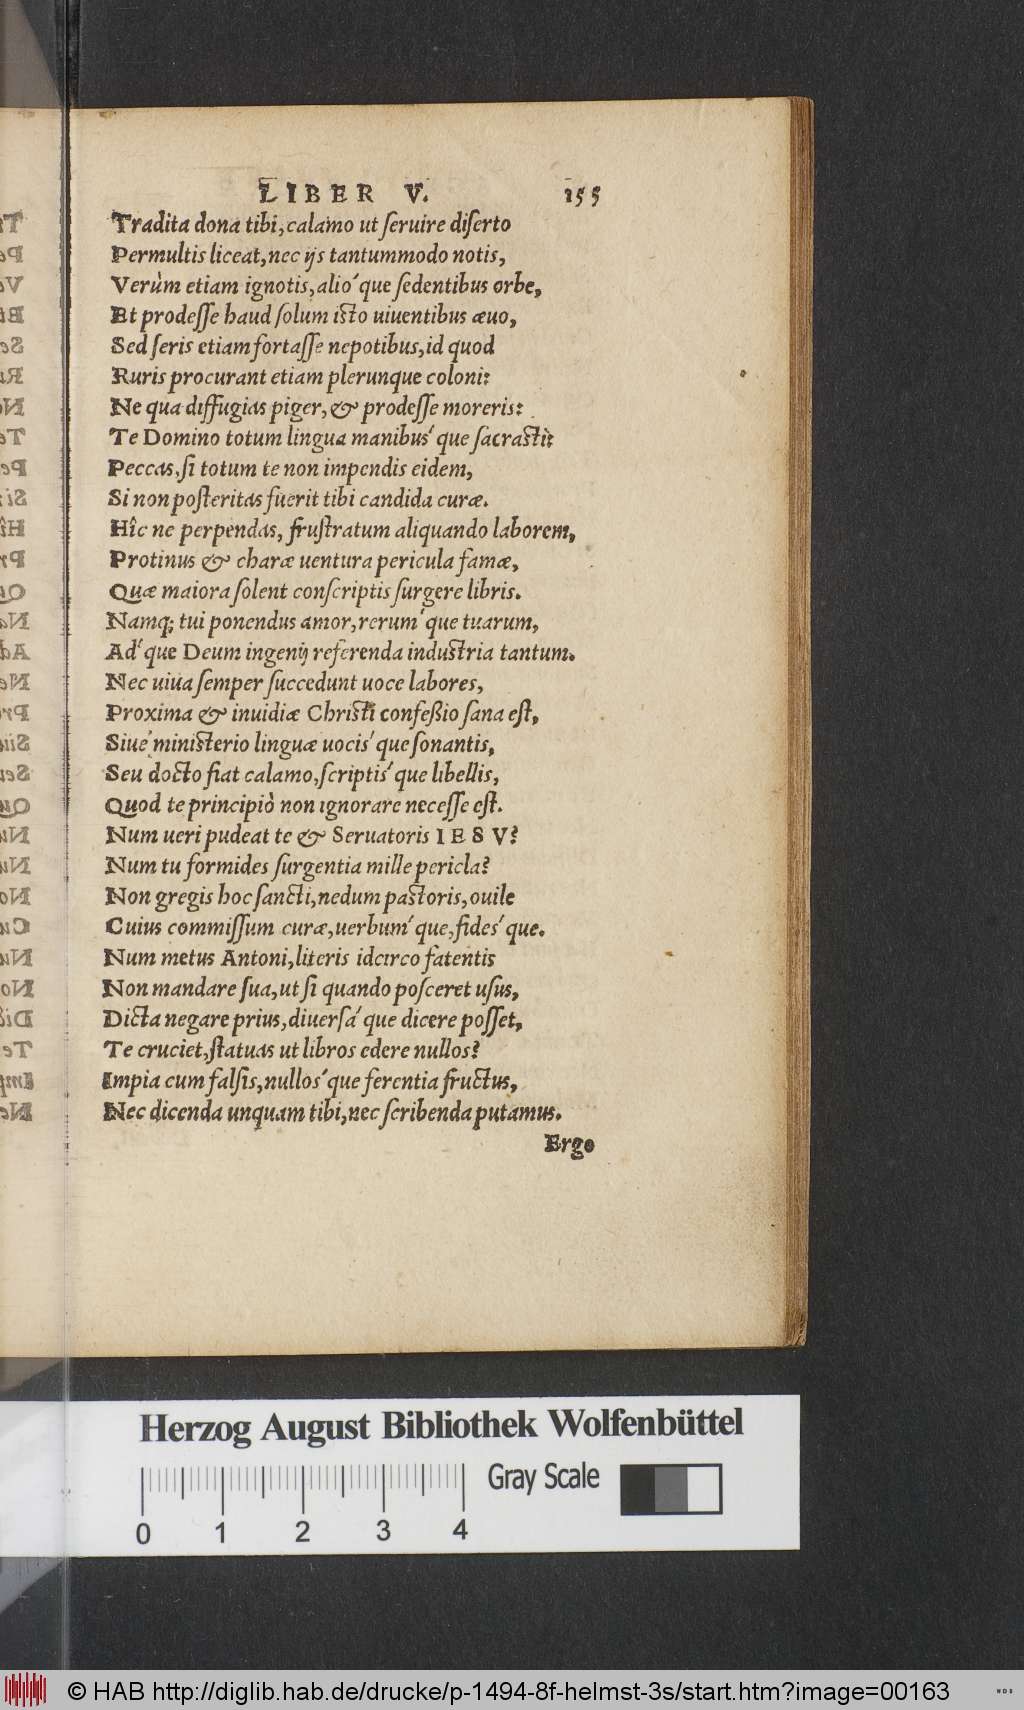 LIBER V. 155
Tradita dona tibi, calamo ut ſeruire diſerto
Permultis liceat, nec ijs tantummodo notis,
Verùm etiam ignotis, alió que ſedentibus orbe,
Et prodeſſe haud ſolum iſto uiuentibus æuo,
Sed ſeris etiam fortaſſe nepotibus, id quod
Ruris procurant etiam plerunque coloni:
Ne qua diffugias piger, & prodeſſe moreris:
Te Domino totum lingua manibuś que ſacraſti:
Peccas, ſi totum te non impendis eidem,
Si non poſteritas fuerit tibi candida curæ.
Hîc ne perpendas, fruſtratum aliquando laborem,
Protinus & charæ uentura pericula famæ,
Quæ maiora ſolent conſcriptis ſurgere libris.
Namq; tui ponendus amor, rerum´ que tuarum,
Ad´ que Deum ingenij referenda induſtria tantum.
Nec uiua ſemper ſuccedunt uoce labores,
Proxima & inuidiæ Chriſti confeßio ſana eſt,
Siue´ miniſterio linguæ uocis´ que ſonantis,
Seu docto fiat calamo, ſcriptis´ que libellis,
Quod te principiò non ignorare neceſſe eſt.
Num ueri pudeat te & Seruatoris IESV?
Num tu formides ſurgentia mille pericla?
Non gregis hoc ſancti, nedum paſtoris, ouile
Cuius commiſſum curæ, uerbum´ que, fides´ que.
Num metus Antoni, literis idcirco fatentis
Non mandare ſua, ut ſi quando poſceret uſus,
Dicta negare prius, diuerſa´ que dicere poſſet,
Te cruciet, ſtatuas ut libros edere nullos?
Impia cum falſis, nullos´ que ferentia fructus,
Nec dicenda unquam tibi, nec ſcribenda putamus.
Ergo
Herzog August Bibliothek Wolfenbüttel
Gray Scale
0 1 2 3 4
© HAB http://diglib.hab.de/drucke/p-1494-8f-helmst-3s/start.htm?image=00163